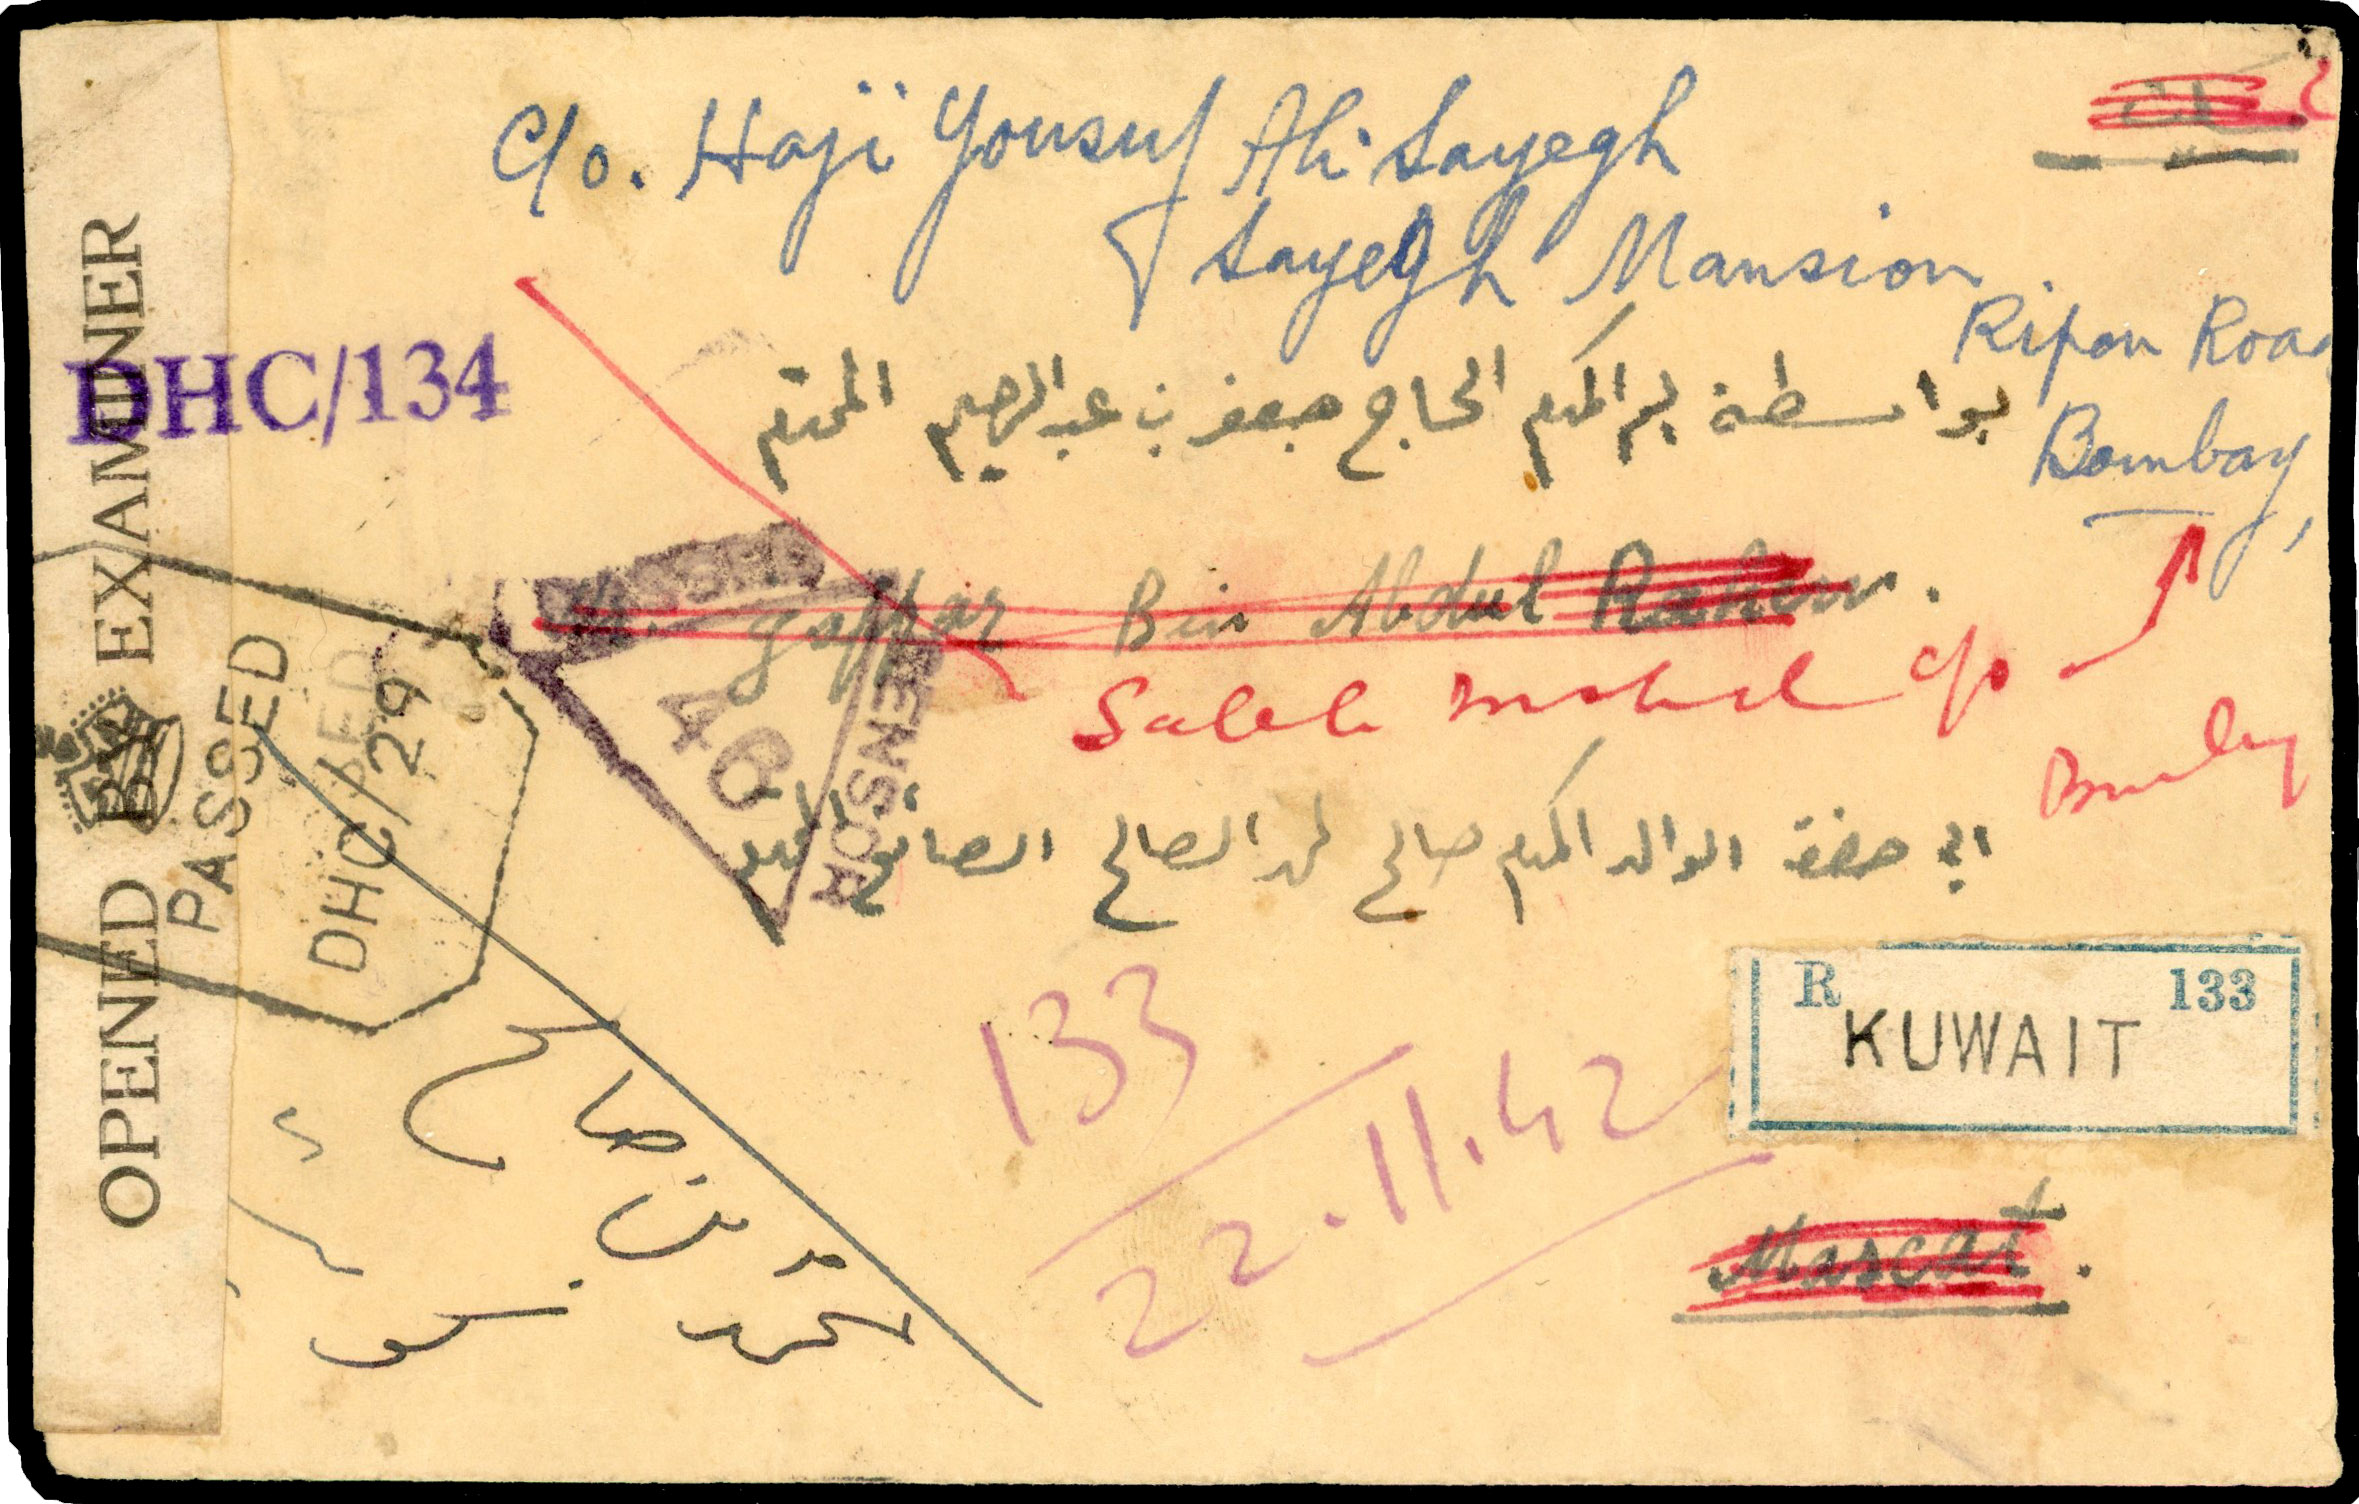 C/o. Haji Yousuf Ali Sayegh
Sayegh Mansion
Ripon Road
Bombay,
بواسطة المكرم الحاج جعفر بن عبد الرحيم المحترم
Gaffar Bin Abdul Rahim.
Saleh c/o
Bombay
الى حضرة الوالد المكرم صالح محمد الصالح الصائغ المحترم
R 133
KUWAIT
133
22.11.42
Mascat.
OPENED BY EXAMINER
DHC/134
PASSED
DHC/29
PASSED
46
CENSOR
محمد بن صالح